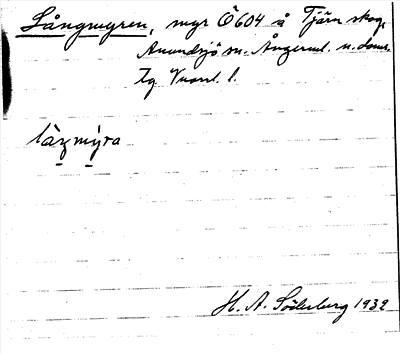 Långmyren, myr Ö 604 å Tjärn skog,
Anundsjö sn. Ångerml. n. doms.
Tg Vnorrl. l.
låŋmýra
H. A. Söderberg 1932